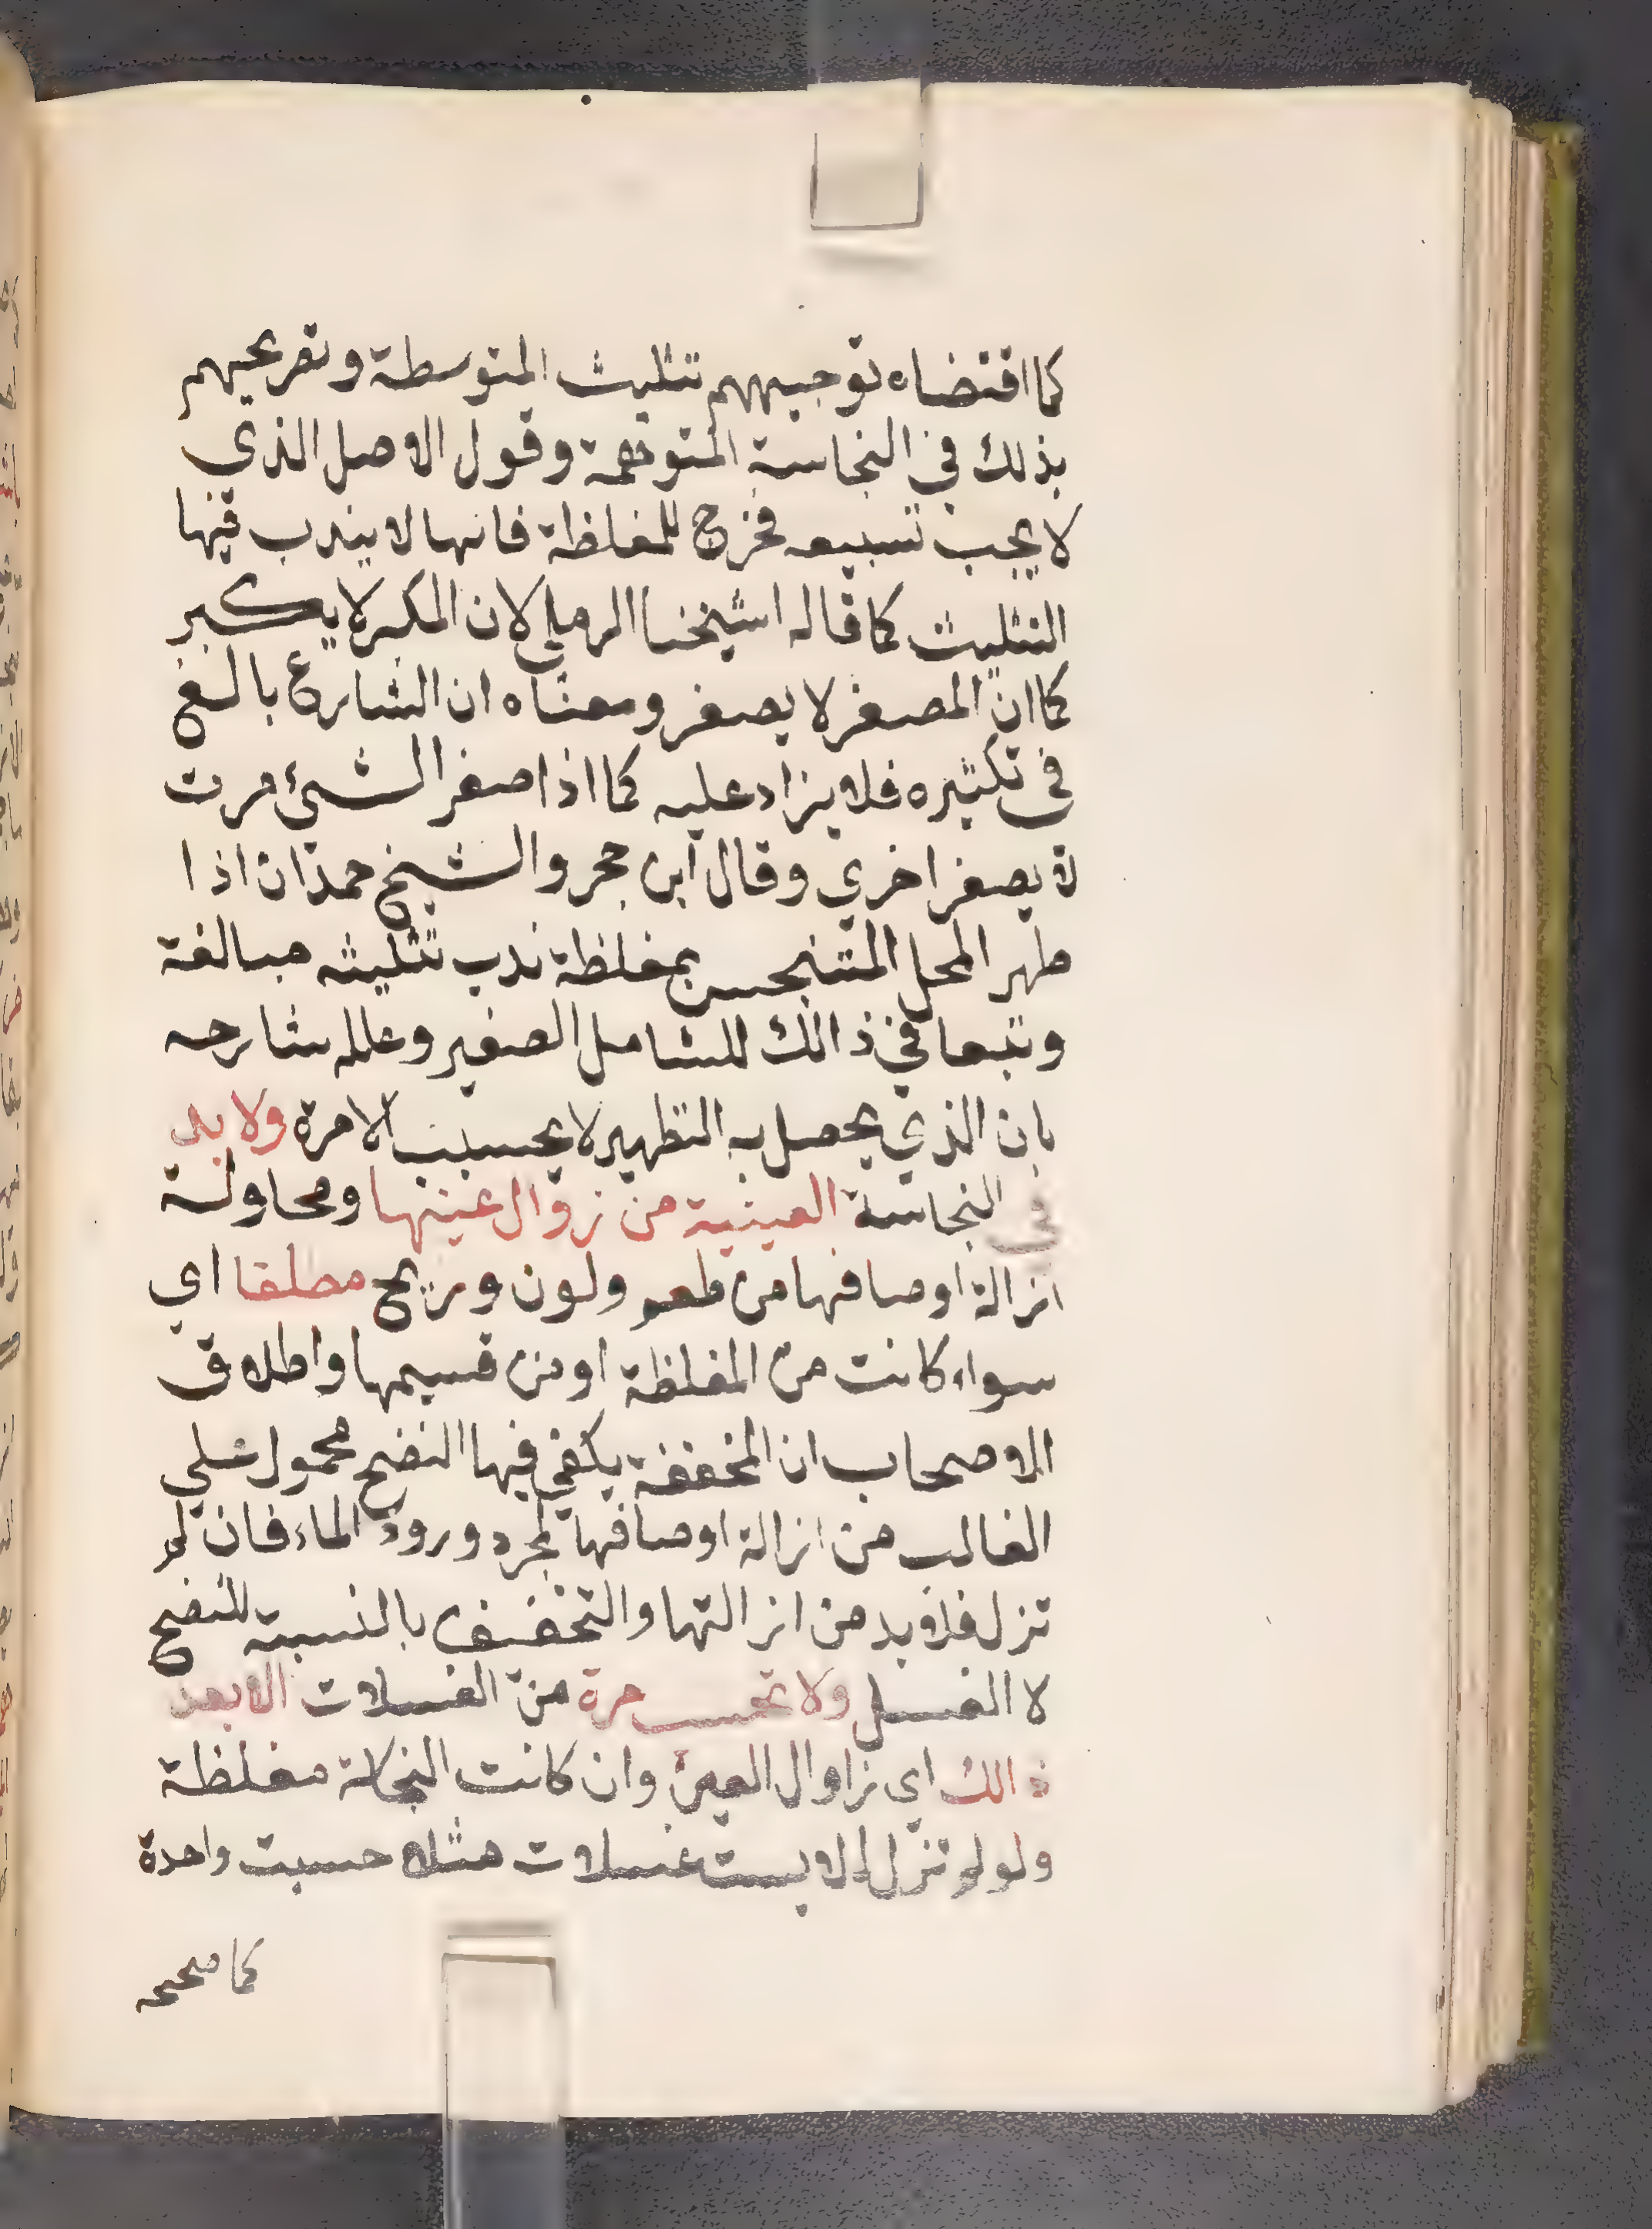 كما اقتضاه توجيههم تثليث المتوسطة وتصريحهم
بذلك في النجاسة المتوهمة وقول الاصل الذي
لا يجب تسبيعه فخرج للمغلظة فانها لا يندب فيها
التثليث كما قاله اشيخنا الرملي لان المكبر لا يكبر
كما ان المصغر لا يصغر ومعناه ان الشارع بالغ
في تكثيره فلا يزاد عليه كما اذا صغر الشئ مرت
لا يصغر اخري وقال ابن حجر والشيخ حمدان اذا
طهر المحل المتنجس بمغلظة ندب تثليثه مبالغة
وتبعا في ذالك للشامل الصغير وعلله شارحه
بان الذي يحصل به التطهير لا يحسب الا مرة ولا بد
في النجاسة العينية من زوال عينها ومحاولة
ازالة اوصافها من طعم ولون وريح مطلقا اي
سواء كانت من المغلظة او من قسيمها واطلاق
الاصحاب ان المخففة يكفي فيها النضح محمول علي
الغالب من ازالة اوصافها بمجرد ورود الماء فان لم
تزل فلا بد من ازالتها والتخفيف بالنسبة للنضح
لا الغسل ولا تحسب مرة من الغسلات الا بعد
ذالك اي زاوال العين وان كانت النجاسة مغلظة
ولو لم تزل الا بست غسلات مثلا حسبت واحدة
كما صححه